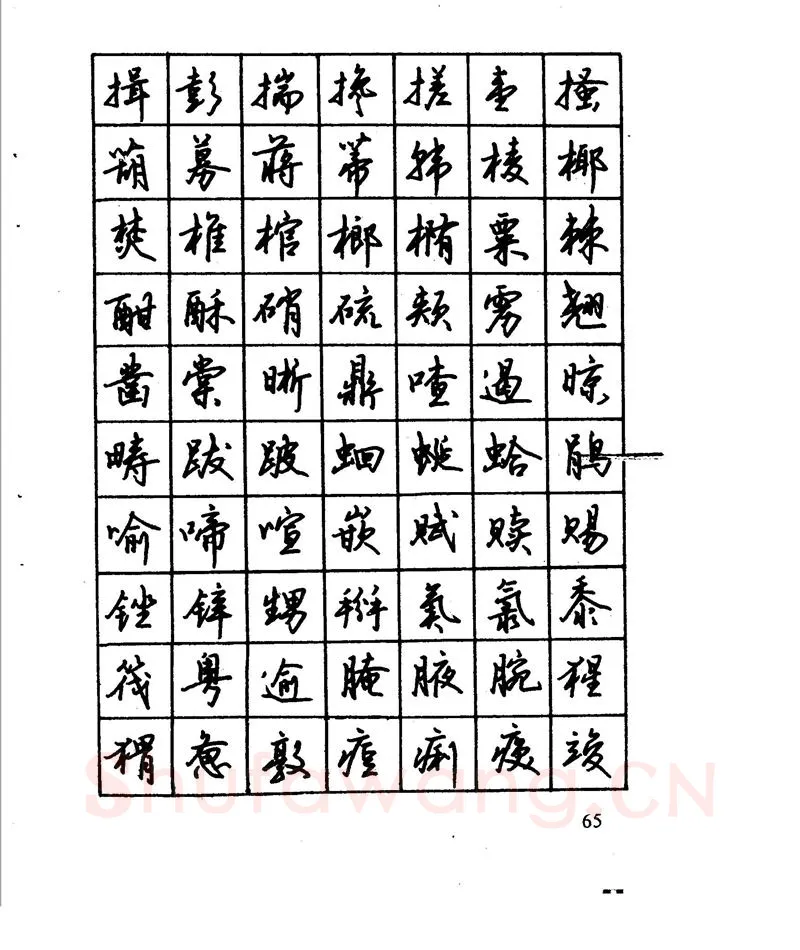 揖彭揣搀搓壹搔
葫募蒋蒂韩棱椰
焚椎棺榔椭粟棘
酣酥硝硫颊雳翘
凿棠晰鼎喳遏晾
畴跋跛蛔蜒蛤鹃
喻啼喧嵌赋赎赐
锉锌甥掰氮氯黍
筏粤逾腌腋腕猩
猬惫敦痘痢痪竣
Shufawang.CN
65